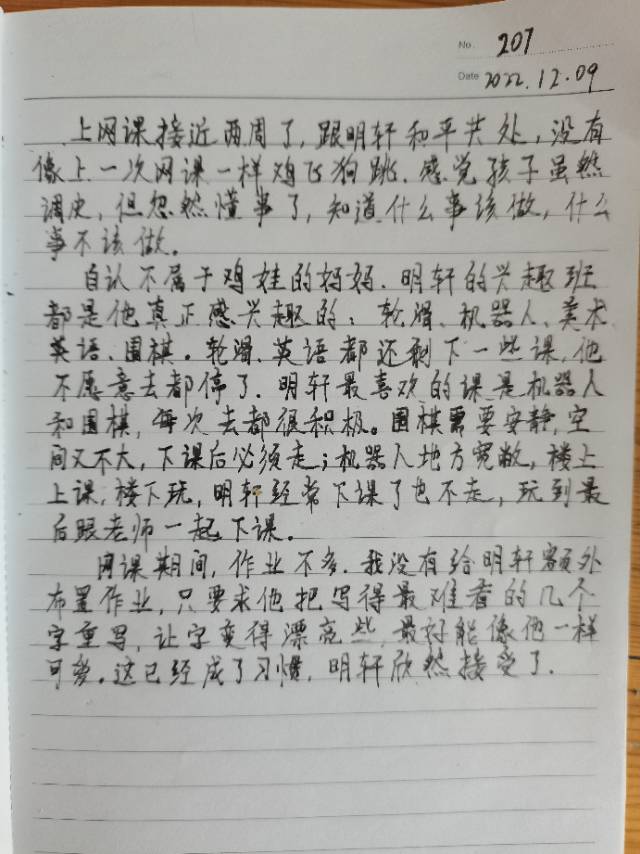 No. 207
Date 2022.12.09
上网课接近两周了,跟明轩和平共处,没有
像上一次网课一样鸡飞狗跳.感觉孩子虽然
调皮,但忽然懂事了,知道什么事该做,什么
事不该做。
自认不属于鸡娃的妈妈.明轩的兴趣班
都是他真正感兴趣的:轮滑、机器人、美术
英语、围棋。轮滑、英语都还剩下一些课,他
不愿意去都停了.明轩最喜欢的课是机器人
和围棋,每次去都很积极。围棋需要安静,空
间又不大,下课后必须走;机器人地方宽敞,楼上
上课,楼下玩,明轩经常下课了也不走,玩到最
后跟老师一起下课。
网课期间,作业不多.我没有给明轩额外
布置作业,只要求他把写得最难看的几个
字重写,让字变得漂亮些,最好能像他一样
可爱。这已经成了习惯,明轩欣然接受了.